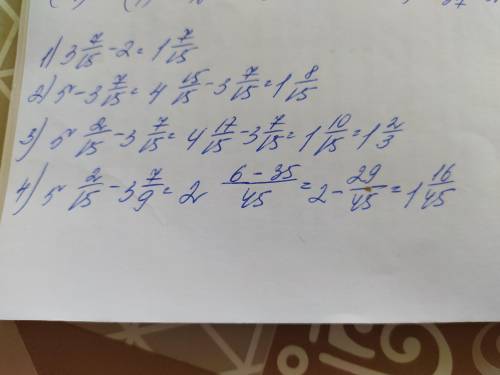 1) 3 7/15 - 2 = 1 7/15
2) 5 - 3 7/15 = 4 15/15 - 3 7/15 = 1 8/15
3) 5 2/15 - 3 7/15 = 4 17/15 - 3 7/15 = 1 10/15 = 1 2/3
4) 5 2/15 - 3 7/9 = 2 (6 - 35)/45 = 2 - 29/45 = 1 16/45